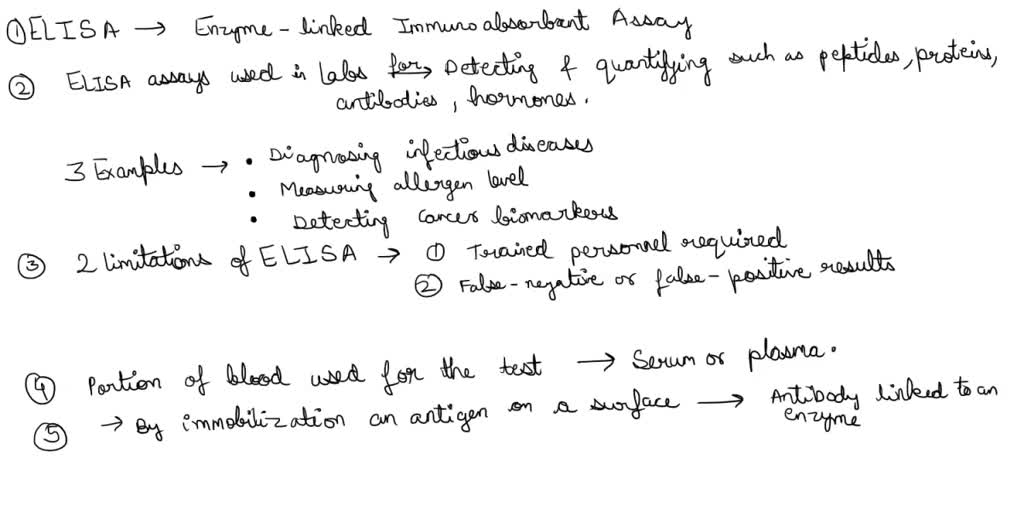 ① ELISA → Enzyme-linked Immunoabsorbent Assay
② ELISA assays used in Labs for→ Detecting & quantifying such as peptides, proteins,
antibodies, hormones.
3 Examples → • Diagnosing infectious diseases
• Measuring allergen level
• Detecting cancer biomarkers
③ 2 limitations of ELISA → ① Trained personnel required
② False-negative or false-positive results
④ Portion of blood used for the test → Serum or plasma.
⑤ → By immobilization an antigen on a surface → Antibody linked to an
enzyme